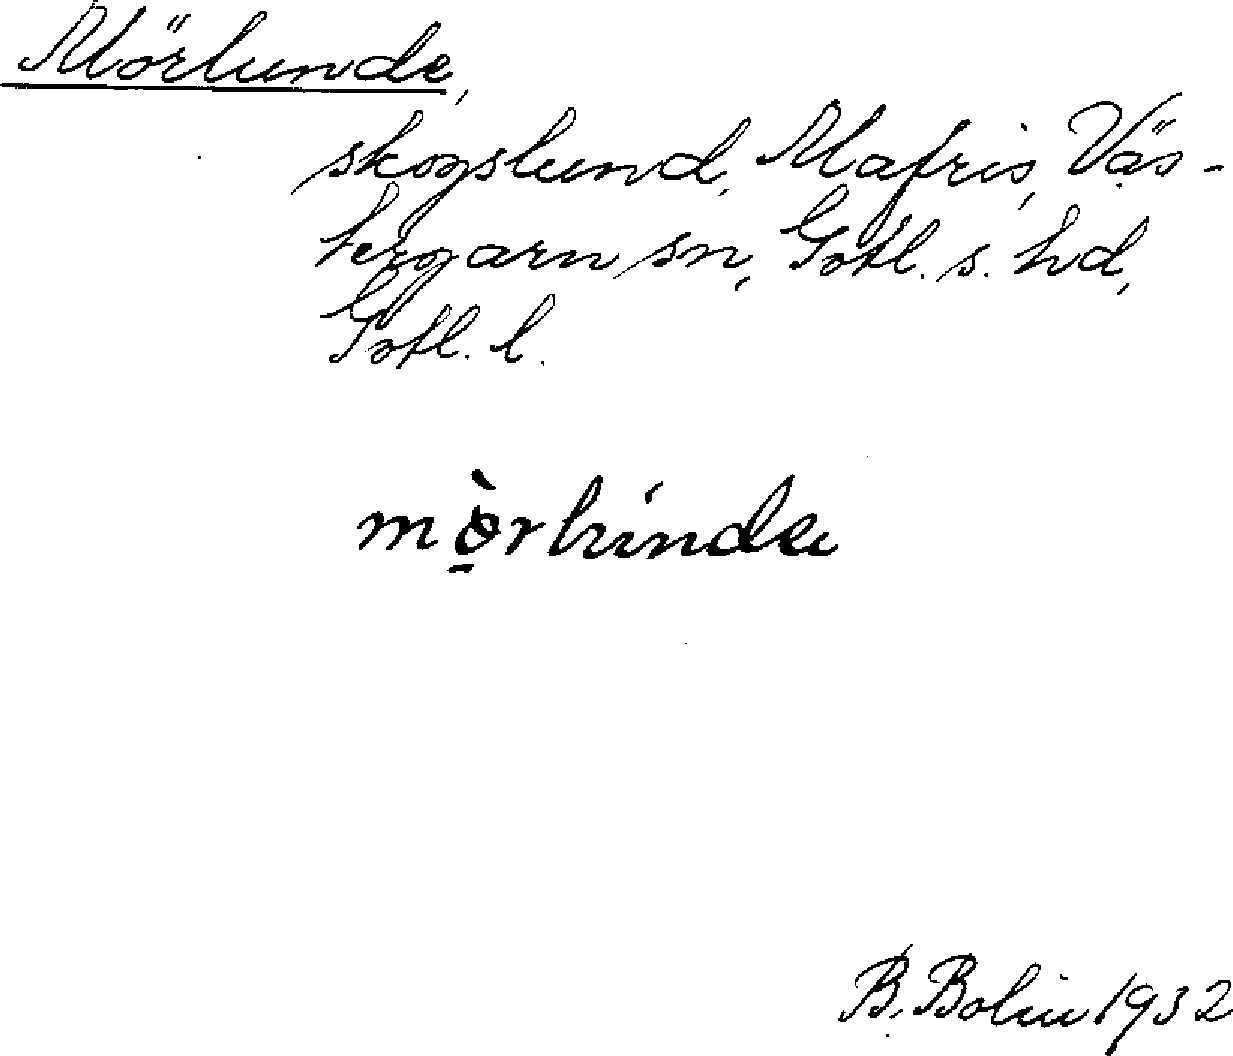 Mörlunde,
skogslund, Mafris, Väs-
tergarn sn, Gotl. s. hd,
Gotl. l.
B. Bolin 1932